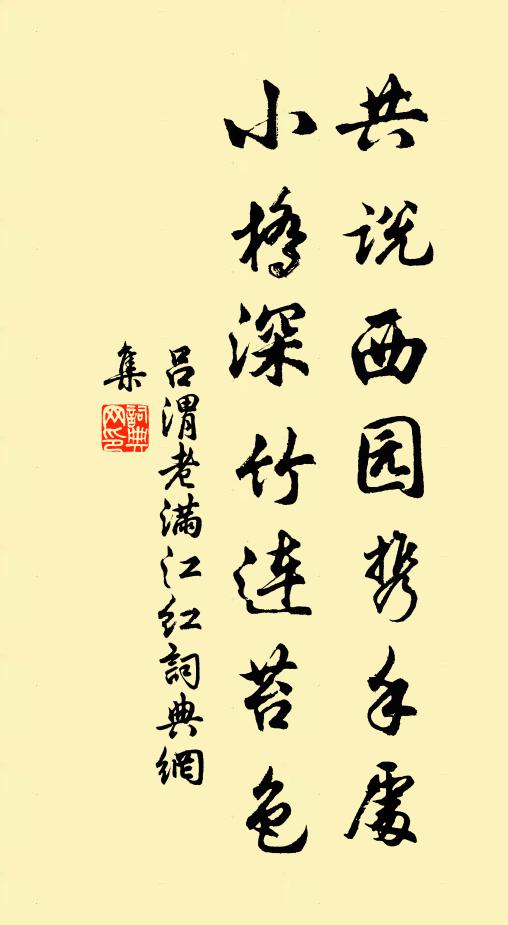 共说西园携手處
小橋深竹连苔色
吕渭老满江红詞典網
集
詞典网印